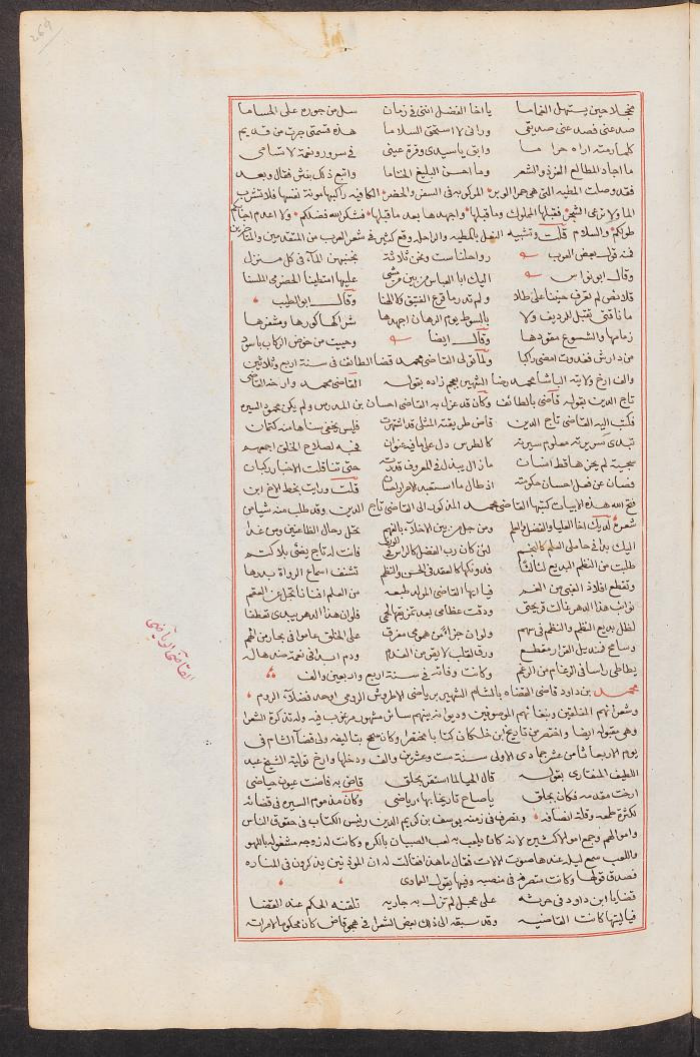 269
مخجلا حين يستهل الغماما يا اخا الفضل انني في زمان سل من جوره على الحساما
صد عني فصد عني صديقي وراني لا استحق السلاما هذه قسمتي جرت من قديم
كلما رمته اراه حراما وابق يا سيدي وقرة عيني في سرور ونعمة لا تسامى
ما اجاد المطالع الغر ذو الشعر وما احسن البليغ الختاما واتبع ذلك بنثر فقال وبعد
فقد وصلت المطيه التي هي حمرا الوبر المركوبه في السفر والحضر الكافيه راكبها مونة نفسها فلا تشرب
الما ولا ترعى الشجر فقبلها المملوك وما قبلها واجهدها بعد ما قبلها فشكر الله فضلكم ولا اعدم احبابكم
طولكم والسلام قلت وتشبيه النعل بالمطيه والراحله وقع كثير في شعر العرب من المتقدمين والمتاخرين
فمنه قول بعض العرب رواحلنا ست ونحن ثلاثة نجنبهن المآء في كل منزل
وقال ابو نواس اليك ابا العباس من بين من مشى عليها امتطينا الحضرمي الملسنا
قلائص لم تعرف حنينا على طلا ولم تدر ما قرع الفنيق ولا الهنا وقال ابو الطيب
ما ناقتي تقبل الرديف ولا بالسوط يوم الرهان اجهدها شراكها كورها ومشفرها
زمامها والشسوع مقودها وقال ايضا وحبيت من خوص الركاب باسود
من دارش فغدوت امشي راكبا ولما تولى القاضي محمد قضا الطائف في سنة اربع وثلاثين
والف ارخ ولايته الباشا محمد رضا الشهير بعجم زاده بقوله القاضي محمد وارخه القاضي
تاج الدين بقوله قاضي بالطائف وكان قد عزل به القاضي احسان بن المدرس ولم يكن محمود السيره
فكتب اليه القاضي تاج الدين قاض طريقته المثلى قد اشتهرت فليس يخفى سناها منه كتمان
تبدي سريرته معلوم سيرته كالطرس دل على ما فيه عنوان فحبه لصلاح الخلق اجمعهم
سجية لم يحزها قط انسان ما زال يبذل في المعروف قدرته حتى تناقلت الاخبار ركبان
وصان عن فضل احسان حكومته اذ طال ما استعبد الاحرار احسان قلت ورايت بخط الاخ ابن
فتح الله هذه الابيات كتبها القاضي محمد المذكور الى القاضي تاج الدين وقد طلب منه شيا من
شعره لديك اخا العليا والفضل والعلم ومن جل من بين الاخلآء بالفهم تحل رحال الظاعنين ومن غدا
اليك لئن كان رب الفضل كالراس فانت له تاج يضئ بلا كتم
طلبت من النظم البديع لئالئا فدونكها كالعقد في الحسن والنظم تشنف اسماع الرواة بدرها
وتقطع افلاذ الغبي من الغم فيا ايها القاضي المولد طبعه من العلم افنانا تجل عن العقم
نوايب هذا الدهر غالت قريحتي ودقت عظامي بعد تمزيقها لحمي فلو ان هذا الدهر يبدي تعطفا
لظل بديع النظم والنثر في سهم ولو ان جزا من همومي مفرق على الخلق عاموا في بحار من الهم
وسامح فنديل القرار مقطع ورق القلب لا يقر من العدم ودم ابدا في نعمة ضدها له
يطاطي راسا في الرغام من الرغم وكانت وفاته في سنة اربع واربعين والف
محمد بن داود قاضي القضاه بالشام الشهير برياضي الاطروش الرومي اوحد فضلاء الروم
وشعرائهم المفلقين وبلغائهم الموصوفين وديوانه بينهم سائر مشهور مرغوب فيه وله تذكرة الشعرا
وهي مقبوله ايضا واختصر تاريخ ابن خلكان كتابا مختصرا وكان سمح بتاليفه ولي قضآ الشام في
يوم الاربعا ثامن عشر جمادى الاولى سنة ست وعشرين والف ودخلها وارخ توليته الشيخ عبد
اللطيف المنقاري بقوله قال الحيا لما استقر بجلق قاض به فاضت عيون حياضي
ارخت مقدمه فكان بجلق يا صاح تاريخا بهاء رياضي وكان مذموم السيره في قضائه
لكثرة طمعه وقلة انصافه وتصرف في زمنه يوسف بن كريم الدين رييس الكتاب في حقوق الناس
واموالهم وجمع اموالا كثيره لانه كان يلعب به لعب الصبيان بالكره وكانت له زوجه مشغوله باللهو
واللعب سمع ليلة عندها صوت الالات فقال ما هذا فقالت له ان الموذنين يذكرون في المناره
فصدق قولها وكانت متصرفه في منصبه وفيها يقول العمادي
قضايا ابن داود في حرثه على عجل لم تزل به جاريه تلقنه الحكم عند القضا
فيا ليتها كانت القاضيه وقد سبقه الى ذلك بعض الشعرا في هجو قاض كان محكوما لامراته
القاضي الرياضي